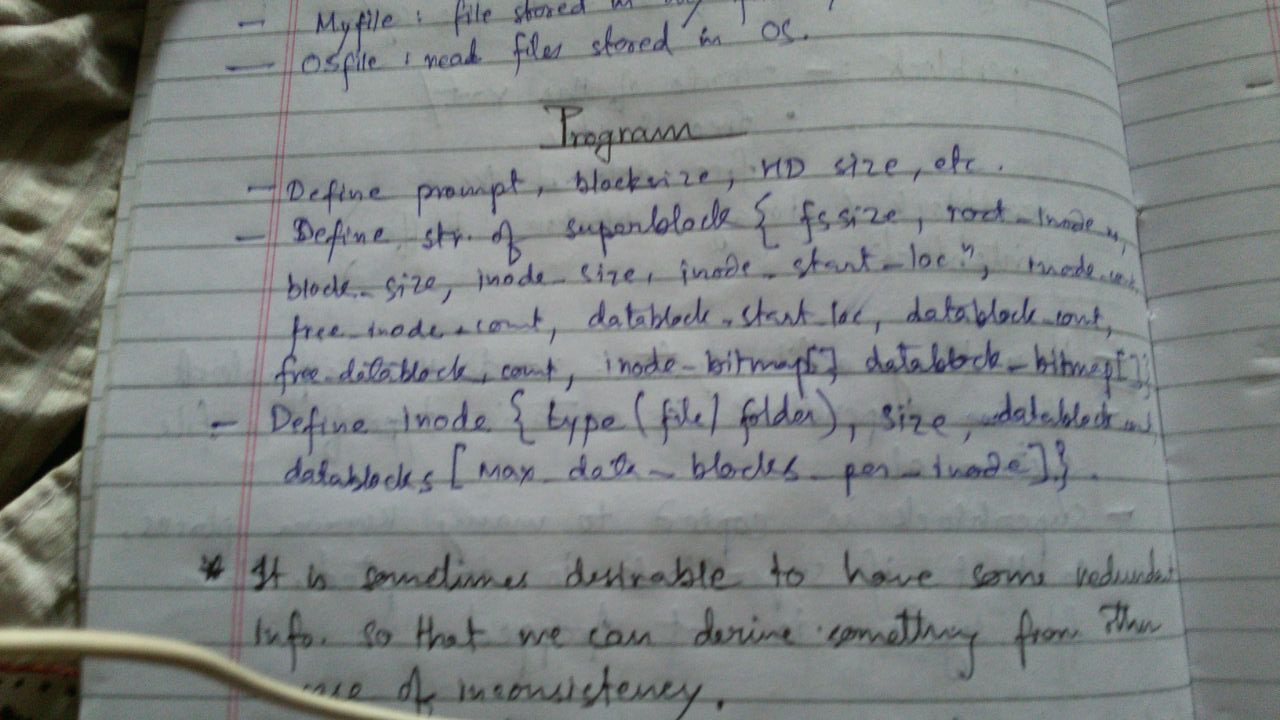 - Myfile : file stored in
- OSfile : read files stored in OS.
Program
- Define prompt, blocksize, HD size, etc.
- Define str. of superblock { fssize, root_inode
block_size, inode_size, inode_start_locⁿ,
free_inode_count, datablock_start_loc, datablock_count,
free_datablock_count, inode_bitmap[] datablock_bitmap[]}
- Define inode { type (file/folder), size, datablock
datablocks [Max_data_blocks_per_inode] }.
* It is sometimes desirable to have some redundant
Info. so that we can derive something from
of inconsistency.